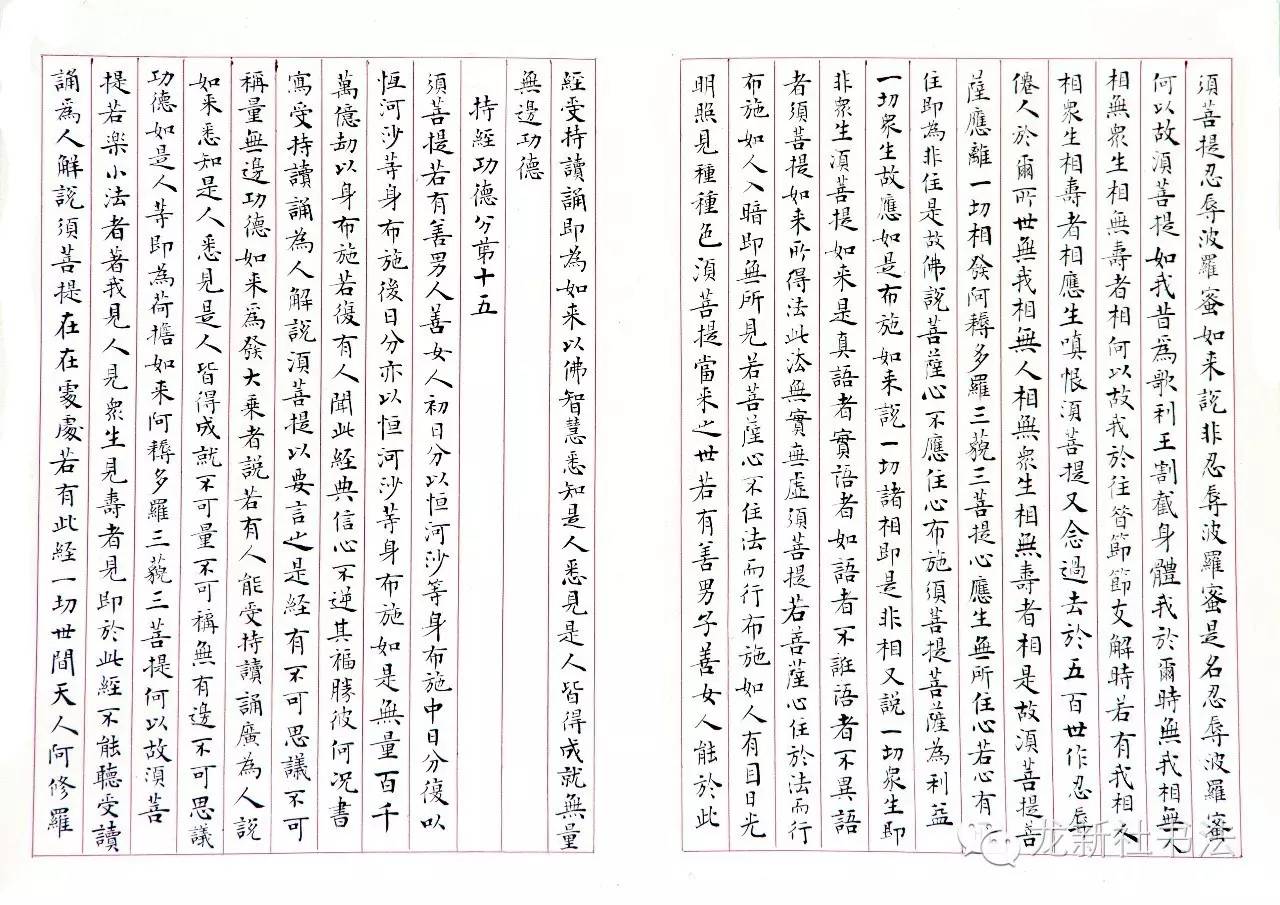 須菩提忍辱波羅蜜如来說非忍辱波羅蜜是名忍辱波羅蜜
何以故須菩提如我昔為歌利王割截身體我於爾時無我相無人
相無衆生相無壽者相何以故我於往昔節節支解時若有我相人
相衆生相壽者相應生嗔恨須菩提又念過去於五百世作忍辱
僊人於爾所世無我相無人相無衆生相無壽者相是故須菩提菩
薩應離一切相發阿耨多羅三藐三菩提心應生無所住心若心有
住即為非住是故佛說菩薩心不應住心布施須菩提菩薩為利益
一切衆生故應如是布施如来說一切諸相即是非相又說一切衆生即
非衆生須菩提如来是真語者實語者如語者不誑語者不異語
者須菩提如来所得法此法無實無虛須菩提若菩薩心住於法而行
布施如人入暗即無所見若菩薩心不住法而行布施如人有目日光
明照見種種色須菩提當来之世若有善男子善女人能於此
經受持讀誦即為如来以佛智慧悉知是人悉見是人皆得成就無量
無邊功德
持經功德分第十五
須菩提若有善男人善女人初日分以恒河沙等身布施中日分復以
恒河沙等身布施後日分亦以恒河沙等身布施如是無量百千
萬億劫以身布施若復有人聞此經典信心不逆其福勝彼何况書
寫受持讀誦為人解說須菩提以要言之是経有不可思議不可
稱量無邊功德如来為發大乘者說若有人能受持讀誦廣為人說
如来悉知是人悉見是人皆得成就不可量不可稱無有邊不可思議
功德如是人等即為荷擔如来阿耨多羅三藐三菩提何以故須菩
提若楽小法者著我見人見衆生見壽者見即於此經不能聽受讀
誦為人解說須菩提在在處處若有此経一切世間天人阿修羅
龙新社书法